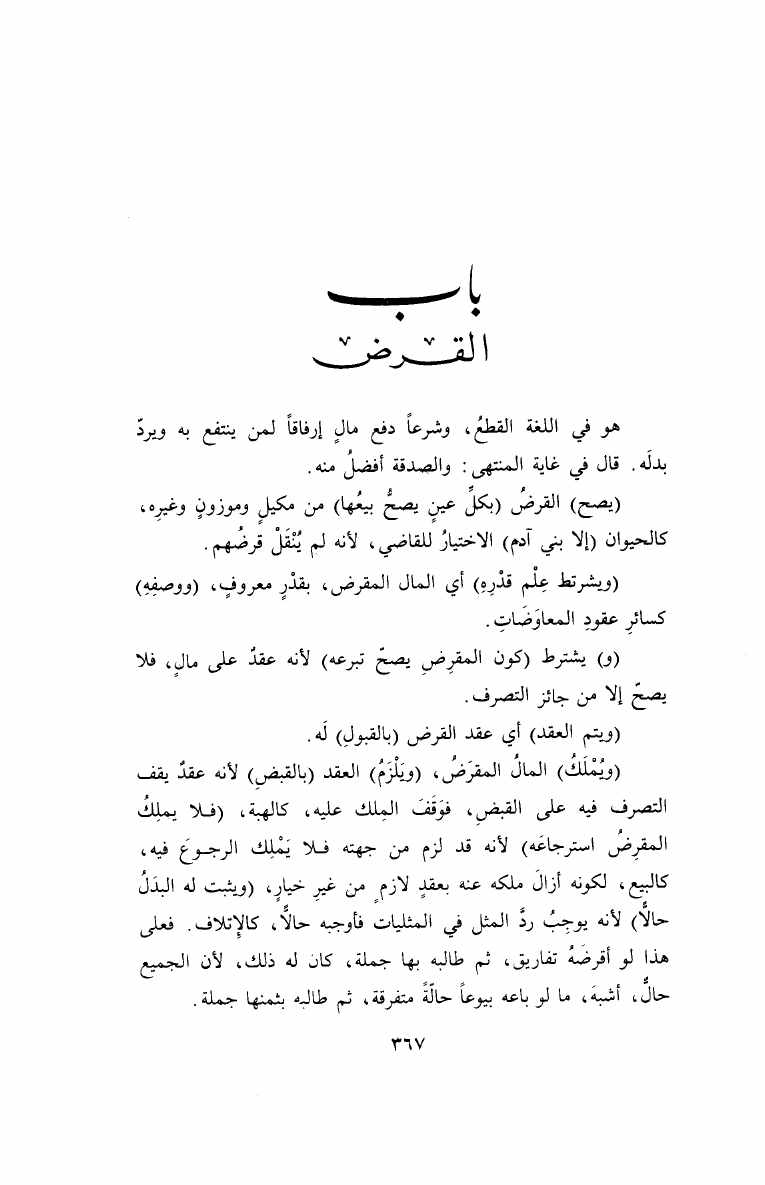 باب
القرض
هو في اللغة القطعُ، وشرعاً دفع مالٍ إرفاقاً لمن ينتفع به ويردّ
بدلَه. قال في غاية المنتهى: والصدقة أفضلُ منه.
(يصح) القرضُ (بكلِّ عينٍ يصحُّ بيعُها) من مكيلٍ وموزونٍ وغيرِه،
كالحيوان (إلا بني آدم) الاختيارُ للقاضي، لأنه لم يُنْقَلْ قرضُهم.
(ويشرتط عِلْم قدْرِه) أي المال المقرض، بقدْرٍ معروفٍ، (ووصفِهِ)
كسائرِ عقودِ المعاوَضَاتِ.
(و) يشترط (كون المقرِضِ يصحّ تبرعه) لأنه عقدٌ على مالٍ، فلا
يصحّ إلا من جائز التصرف.
(ويتم العقد) أي عقد القرض (بالقبولِ) لَه.
(ويُمْلَكُ) المالُ المقرَضُ، (ويَلْزَمُ) العقد (بالقبضِ) لأنه عقدٌ يقف
التصرف فيه على القبضِ، فوَقَفَ المِلك عليه، كالهبة، (فلا يملكُ
المقرِضُ استرجاعَه) لأنه قد لزم من جهته فلا يَمْلِك الرجوعَ فيه،
كالبيع، لكونه أزالَ ملكه عنه بعقدٍ لازمٍ من غيرِ خيارٍ، (ويثبت له البدَلُ
حالًّا) لأنه يوجِبُ ردَّ المثل في المثليات فأوجبه حالًّا، كالإتلاف. فعلى
هذا لو أقرضَهُ تفاريق، ثم طالبه بها جملة، كان له ذلك، لأن الجميع
حالٌّ، أشبهَ، ما لو باعه بيوعاً حالّةً متفرقة، ثم طالبه بثمنها جملة.
٣٦٧